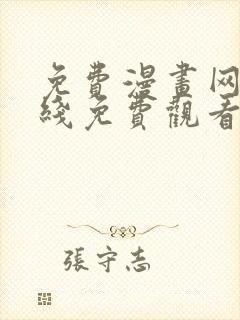 免費漫畫网
綫免費觀看
張守志